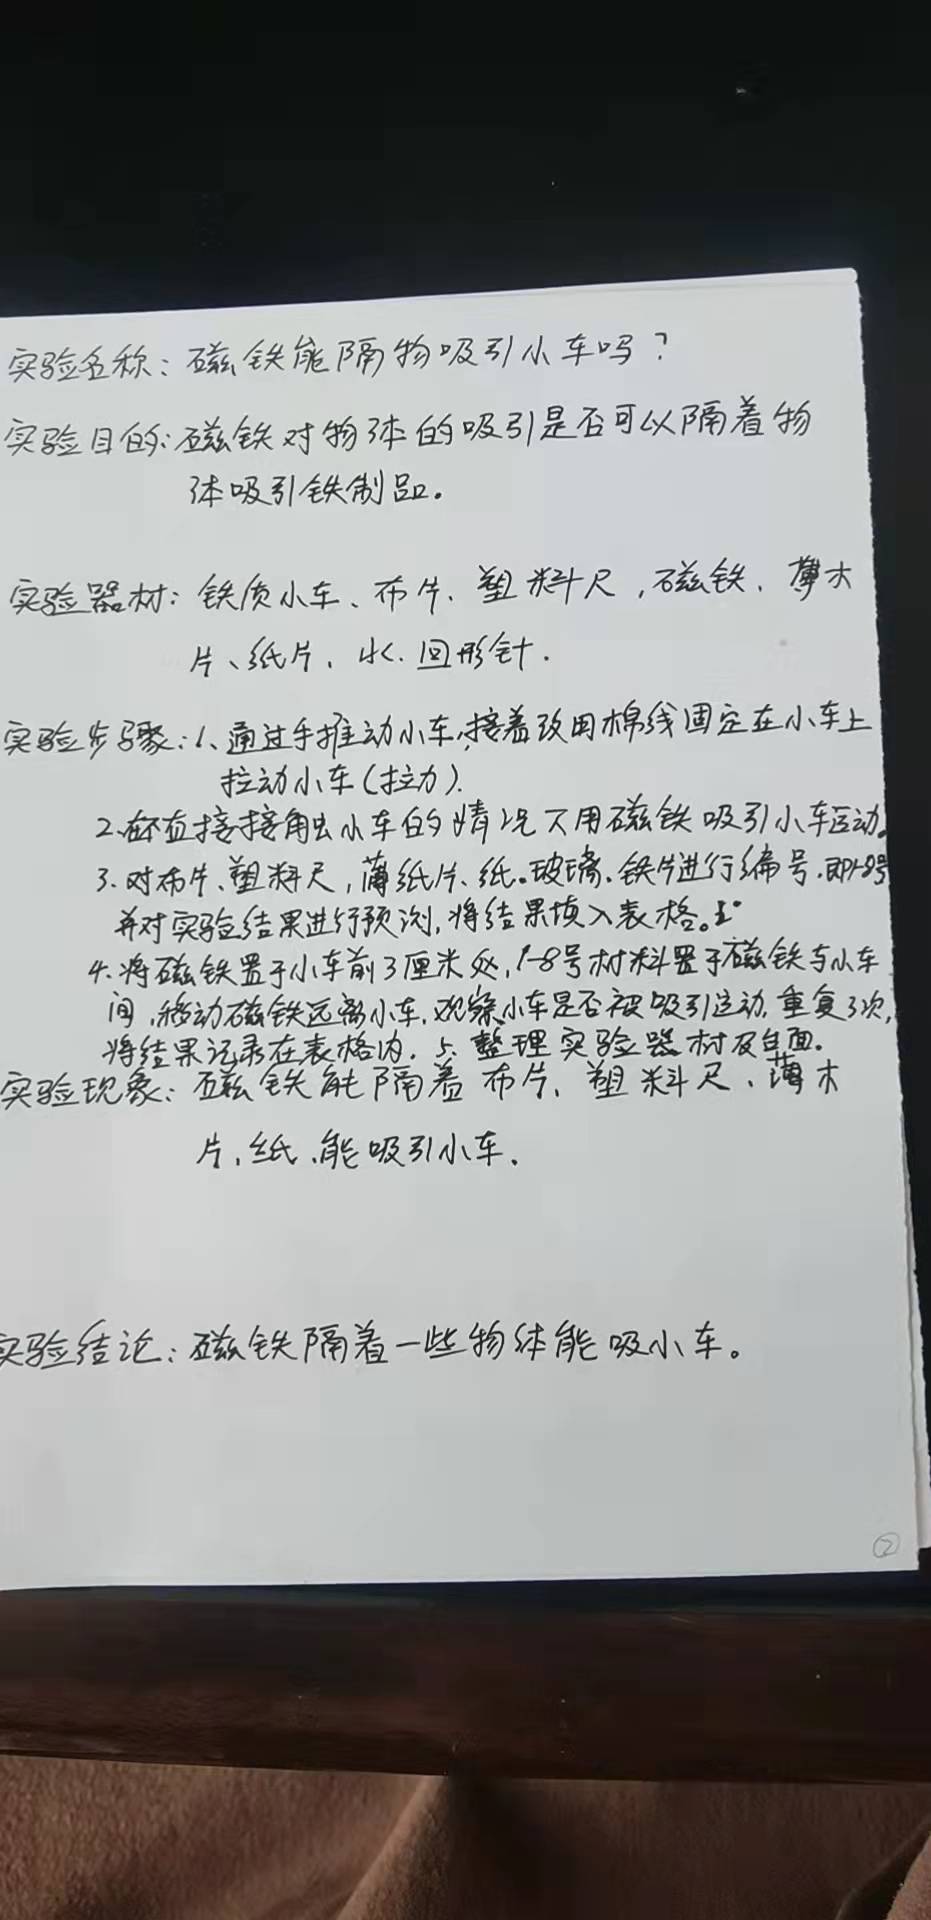 实验名称：磁铁能隔物吸引小车吗？
实验目的：磁铁对物体的吸引是否可以隔着物
体吸引铁制品。
实验器材：铁质小车、布片、塑料尺，磁铁、薄木
片、纸片、水、回形针.
实验步骤：1、通过手推动小车，接着改用棉线固定在小车上
拉动小车（拉力）.
2.在不直接接触小车的情况下用磁铁吸引小车运动。
3.对布片、塑料尺，薄纸片、纸。玻璃.铁片进行编号.即1-8号
并对实验结果进行预测，将结果填入表格。
4.将磁铁置于小车前3厘米处，1-8号材料置于磁铁与小车
间，移动磁铁远离小车，观察小车是否被吸引运动，重复3次，
将结果记录在表格内. 5.整理实验器材及台面.
实验现象：磁铁能隔着布片、塑料尺、薄木
片、纸、能吸引小车.
实验结论：磁铁隔着一些物体能吸小车。
②